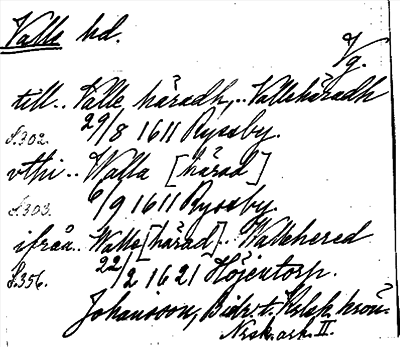 Valle hd.
Vg.
till.. Valle häradh,.. Vallehäradh
S.302. 29/8 1611 Ryssby.
vthi.. Walla [härad]
S.303. 6/9 1611 Ryssby.
ifrån.. Walle [härad].. Wallehered
S.356. 22/2 1621 Höjentorp.
Johansson, Bidr. t. Krlsk. krön.
Nrsk. ark. II.